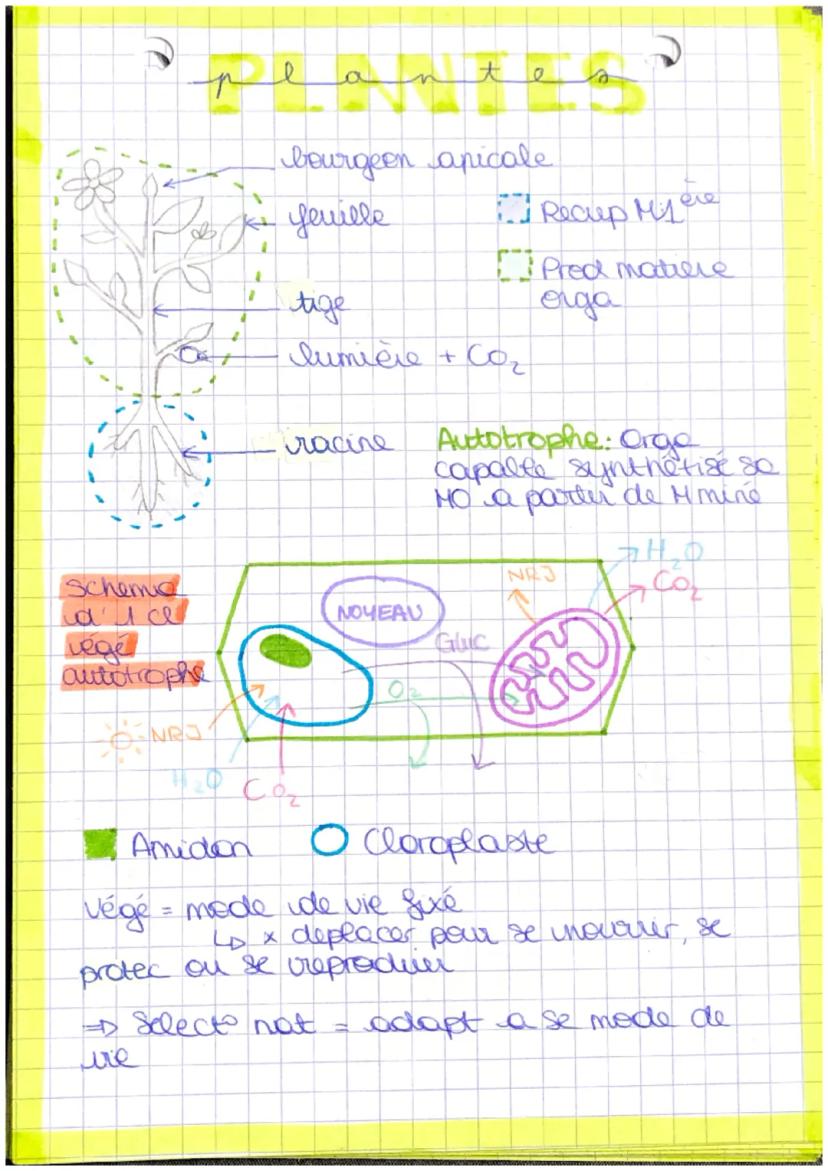 PLANTES
plantes
bourgeon apicale
feuille
Recup M1ère
Prod matière
orga
tige
lumière + CO₂
racine
Autotrophe: Orga
capable synthétisé sa
MO a partir de M miné
schema
d'1 cl
végé
autotrophe
NOYEAU
NRJ
H₂O
CO₂
Gluc
O₂
NRJ
H₂O
CO₂
Amidon
Cloroplaste
végé = mode de vie fixé
↳ × deplacer pour se nourrir, se
protec ou se reproduir
⇒ Select° nat = adapt a se mode de
vie